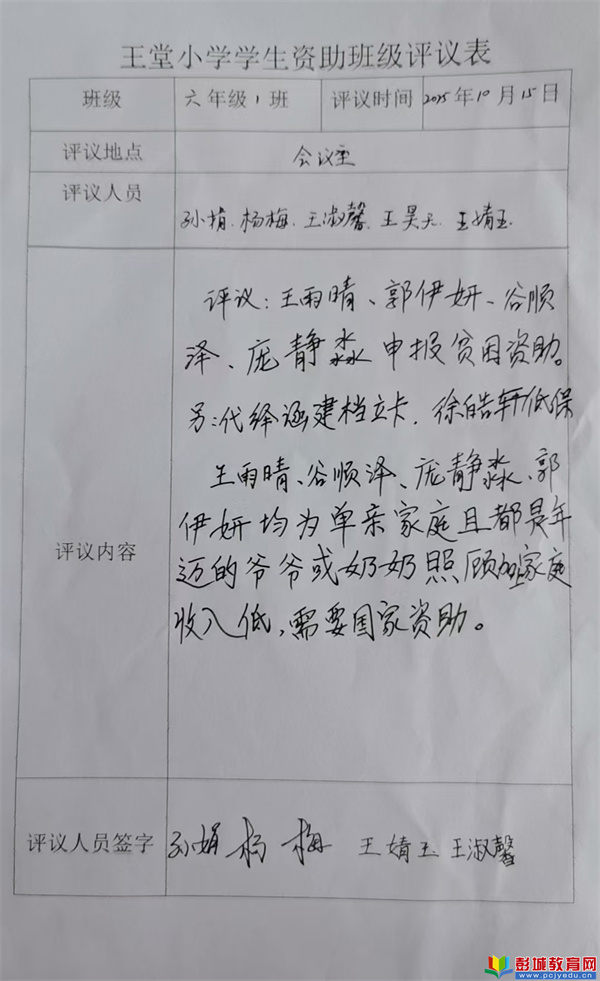 王堂小学学生资助班级评议表
班级 六年级1班 评议时间 2025年10月15日
评议地点 会议室
评议人员 孙娟、杨梅、王淑馨、王昊天、王婧玉
评议:王雨晴、郭伊妍、谷顺
泽、庞静淼申报贫困资助。
另:代绎涵建档立卡,徐皓轩低保
王雨晴、谷顺泽、庞静淼、郭
伊妍均为单亲家庭且都是年
评议内容
迈的爷爷或奶奶照顾加家庭
收入低,需要国家资助。
评议人员签字 孙娟 杨梅 王婧玉 王淑馨
彭城教育网
www.pcjyedu.cn